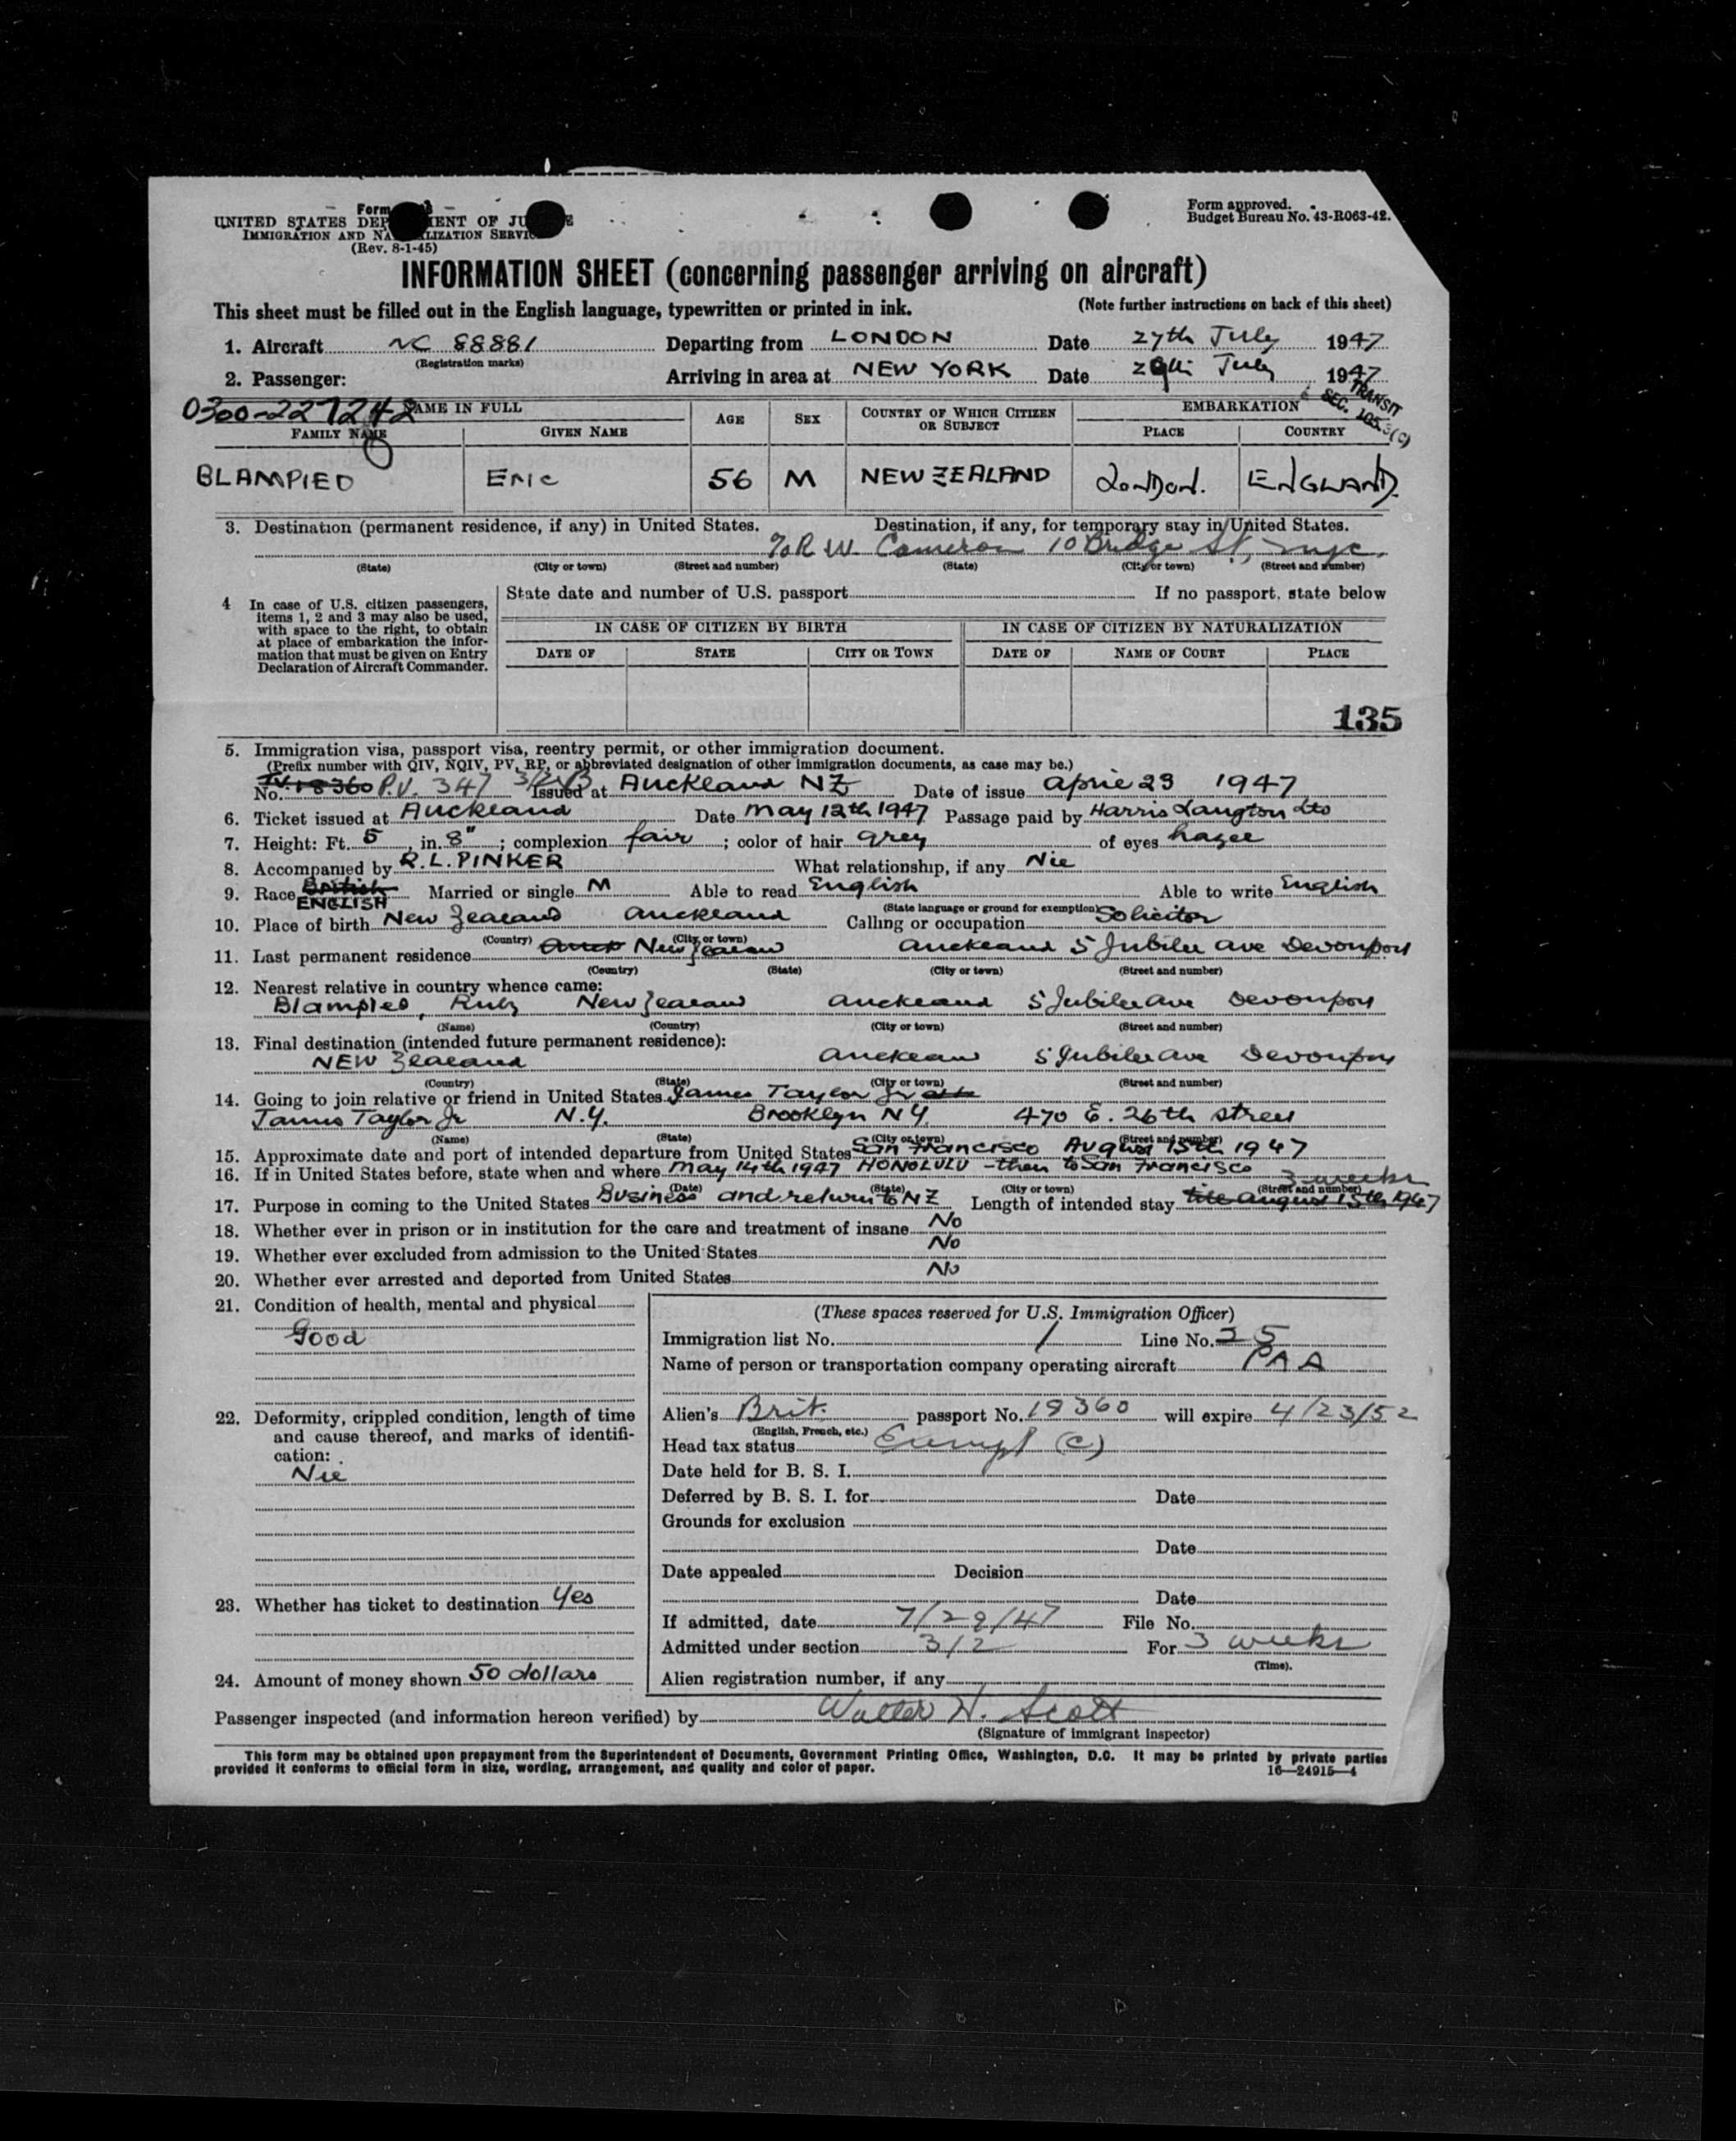 Form
UNITED STATES DEP MENT OF JU E
IMMIGRATION AND NA LIZATION SERVI
(Rev. 8-1-45)
Form approved.
Budget Bureau No. 43-R063-42.
INFORMATION SHEET (concerning passenger arriving on aircraft)
This sheet must be filled out in the English language, typewritten or printed in ink. (Note further instructions on back of this sheet)
1. Aircraft NC 88881 Departing from LONDON Date 27th July 1947
(Registration marks)
2. Passenger: Arriving in area at NEW YORK Date 29th July 1947
TRANSIT
SEC. 105.3(c)
0300-227242
NAME IN FULL AGE SEX COUNTRY OF WHICH CITIZEN OR SUBJECT EMBARKATION
FAMILY NAME GIVEN NAME PLACE COUNTRY
BLAMPIED Eric 56 M NEW ZEALAND LONDON. ENGLAND.
3. Destination (permanent residence, if any) in United States. Destination, if any, for temporary stay in United States.
% R W Cameron 10 Bridge St, nyc.
(State) (City or town) (Street and number) (State) (City or town) (Street and number)
4 In case of U.S. citizen passengers, items 1, 2 and 3 may also be used, with space to the right, to obtain at place of embarkation the information that must be given on Entry Declaration of Aircraft Commander.
State date and number of U.S. passport If no passport, state below
IN CASE OF CITIZEN BY BIRTH IN CASE OF CITIZEN BY NATURALIZATION
DATE OF STATE CITY OR TOWN DATE OF NAME OF COURT PLACE
135
5. Immigration visa, passport visa, reentry permit, or other immigration document.
(Prefix number with QIV, NQIV, PV, RP, or abbreviated designation of other immigration documents, as case may be.)
No. 18360 P.V. 347 3(2)B Issued at Auckland NZ Date of issue April 23 1947
6. Ticket issued at Auckland Date May 12th 1947 Passage paid by Harris Langton Ltd
7. Height: Ft. 5, in. 8"; complexion fair; color of hair grey of eyes hazel
8. Accompanied by R.L. PINKER What relationship, if any Nil
9. Race British ENGLISH Married or single M Able to read English Able to write English
(State language or ground for exemption)
10. Place of birth New Zealand Auckland Calling or occupation Solicitor
(Country) (City or town)
11. Last permanent residence Auck New Zealand Auckland 5 Jubilee Ave Devonport
(Country) (State) (City or town) (Street and number)
12. Nearest relative in country whence came:
Blampied, Ruby New Zealand Auckland 5 Jubilee Ave Devonport
(Name) (Country) (City or town) (Street and number)
13. Final destination (intended future permanent residence):
NEW Zealand Auckland 5 Jubilee Ave Devonport
(Country) (State) (City or town) (Street and number)
14. Going to join relative or friend in United States James Taylor Jr
James Taylor Jr N.Y. Brooklyn NY. 470 E. 26th street
(Name) (State) (City or town) (Street and number)
15. Approximate date and port of intended departure from United States San Francisco August 15th 1947
16. If in United States before, state when and where May 14th 1947 HONOLULU - then to San Francisco
(Date) (State) (City or town) (Street and number)
3 weeks
17. Purpose in coming to the United States Business and return to NZ Length of intended stay till August 15th 1947
18. Whether ever in prison or in institution for the care and treatment of insane No
19. Whether ever excluded from admission to the United States No
20. Whether ever arrested and deported from United States No
21. Condition of health, mental and physical
Good
22. Deformity, crippled condition, length of time and cause thereof, and marks of identification:
Nil
23. Whether has ticket to destination Yes
24. Amount of money shown 50 dollars
(These spaces reserved for U.S. Immigration Officer)
Immigration list No. 1 Line No. 25
Name of person or transportation company operating aircraft PAA
Alien's Brit. passport No. 18360 will expire 4/23/52
(English, French, etc.)
Head tax status Exempt (c)
Date held for B. S. I.
Deferred by B. S. I. for Date
Grounds for exclusion
Date
Date appealed Decision
Date
If admitted, date 7/29/47 File No.
Admitted under section 3/2 For 3 weeks
(Time).
Alien registration number, if any
Passenger inspected (and information hereon verified) by Walter W. Scott
(Signature of immigrant inspector)
This form may be obtained upon prepayment from the Superintendent of Documents, Government Printing Office, Washington, D.C. It may be printed by private parties
provided it conforms to official form in size, wording, arrangement, and quality and color of paper.
16—24915-4